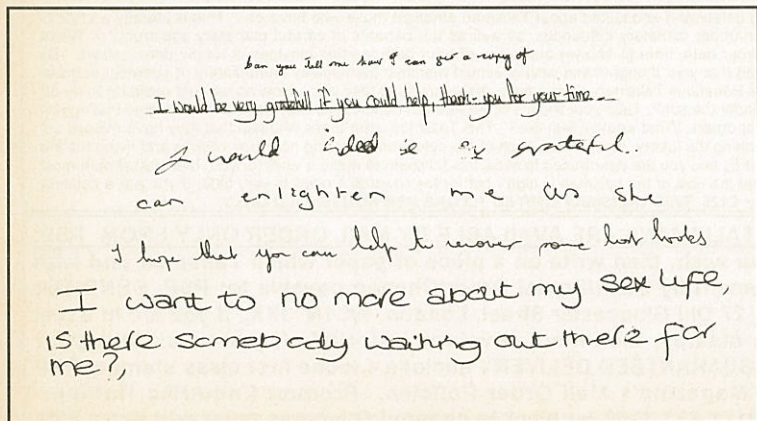 Can you tell me how I can get a copy of
I would be very grateful if you could help, thank-you for your time -
I would indeed be grateful..
can enlighten me as she
I hope that you can help to recover some lost books
I want to no more about my sex life,
is there somebody waiting out there for
me?,